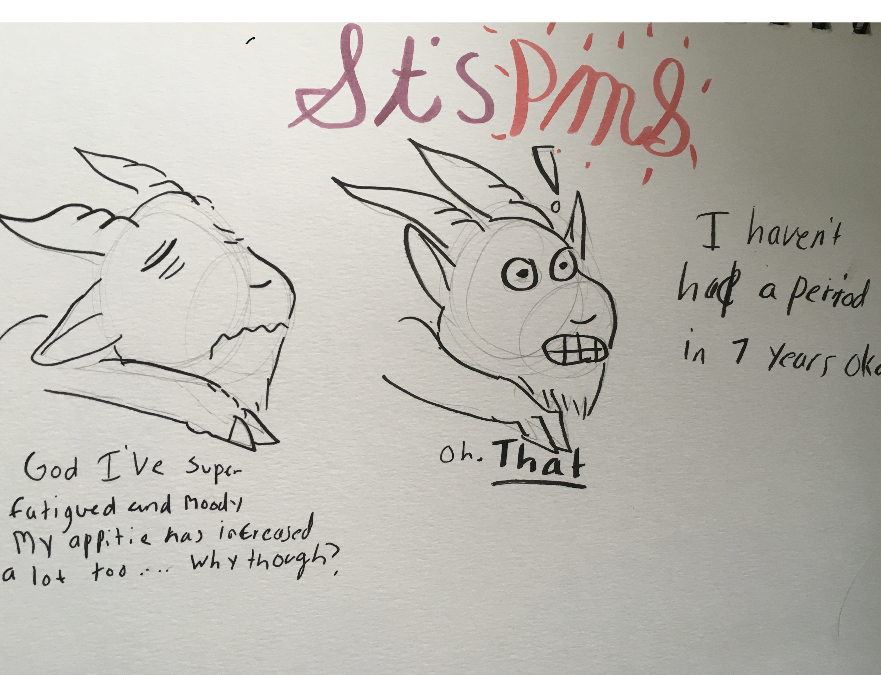 It's PMS
!
God I've super
Fatigued and moody
My appitie has increased
a lot too .... Why though?
Oh. That
I haven't
had a period
in 7 years oka